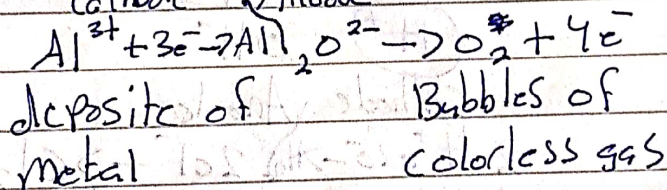 Al³⁺ + 3e⁻ → Al 2O²⁻ → O₂ + 4e⁻
deposite of Bubbles of
metal colorless gas